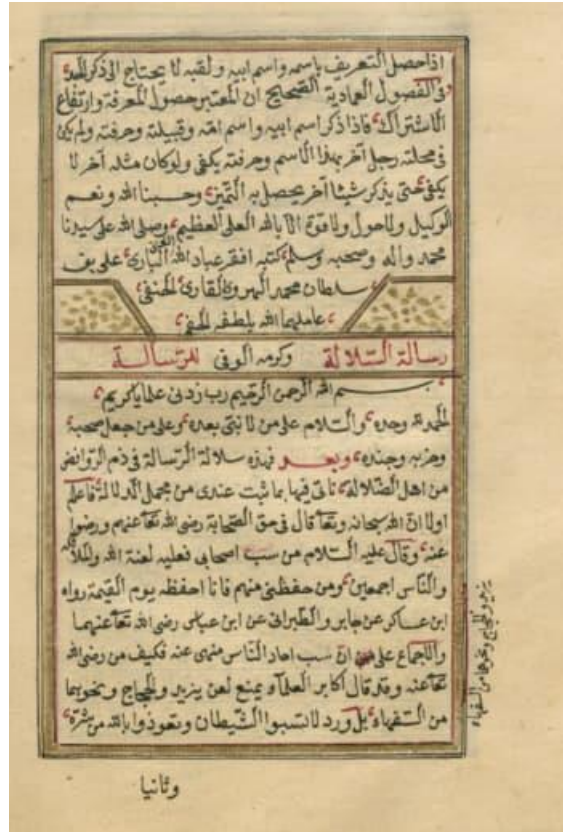 اذا حصل التعريف باسمه واسم ابيه ولقبه لا يحتاج الى ذكر الجد
وفى الفصول العمادية الصحيح ان المعتبر حصول المعرفة وارتفاع
الاشتراك فاذا ذكر اسم ابيه واسم امّه وقبيلته وحرفته ولم يكن
فى محلته رجل آخر بهذا الاسم وحرفته يكفى ولو كان مثله آخر لا
يكفى حتى يذكر شيئا آخر يحصل به التميز وحسبنا الله ونعم
الوكيل ولا حول ولا قوة الا بالله العلى العظيم وصلى الله على سيدنا
محمد واله وصحبه وسلم كتبه افقر عباد الله الغنى البارى على بن
سلطان محمد الهروى القارى الحنفى
عاملهما الله بلطفه الخفى
رسالة السلالة وكرمه الوفى للرسالة
بسم الله الرحمن الرحيم رب زدنى علما يا كريم
الحمد لله وحده والسلام على من لا نبى بعده وعلى من جعل صحبه
وحزبه وجنده وبعد فهذه سلالة الرسالة فى ذم الروافض
من اهل الضلالة ناتى فيها بما ثبت عندى من مجمل الدلالة فاعلم
اولا ان الله سبحانه وتعا قال فى حق الصحابة رضى الله تعا عنهم ورضوا
عنه وقال عليه السلام من سب اصحابى فعليه لعنة الله والملائكة
والناس اجمعين ومن حفظنى منهم فانا احفظه يوم القيمة رواه
ابن عساكر عن جابر والطبرانى عن ابن عباس رضى الله تعا عنهما
والاجماع على ان سب احاد الناس منهى عنه فكيف من رضى الله
تعا عنه وقد قال اكابر العلما ويمنع لعن يزيد والحجاج ونحوهما
من السفهاء بل ورد لا تسبوا الشيطان وتعوذوا بالله من شره
وثانيا
يزيد والحجاج ونحوهما من السفهاء